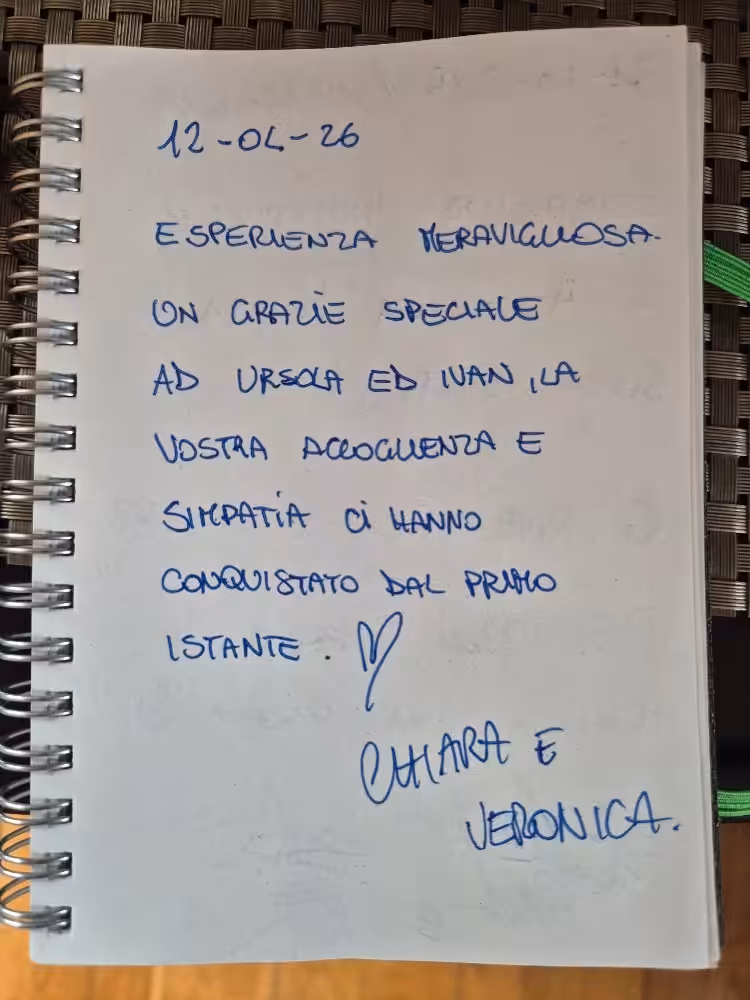 12-04-26
ESPERIENZA MERAVIGLIOSA.
UN GRAZIE SPECIALE
AD URSOLA ED IVAN, LA
VOSTRA ACCOGLIENZA E
SIMPATIA CI HANNO
CONQUISTATO DAL PRIMO
ISTANTE. ♡
CHIARA E
VERONICA.